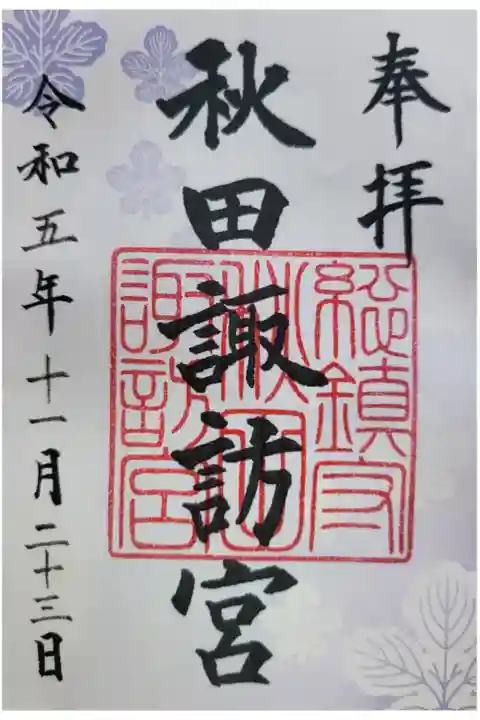 奉拝
秋田諏訪宮
総鎮守
秋田
諏訪宮
令和五年十一月二十三日